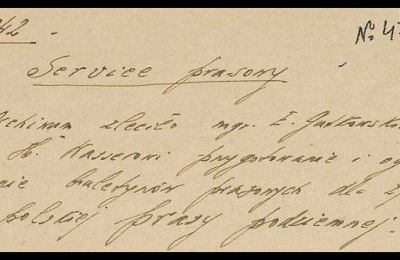 242.
№ 4
Service prasowy
Archiwum zleciło mgr. E. Gutkowski
H. Wasserowi przygotowanie i
nie biuletynów prasowych dla
polskiej prasy podziemnej.